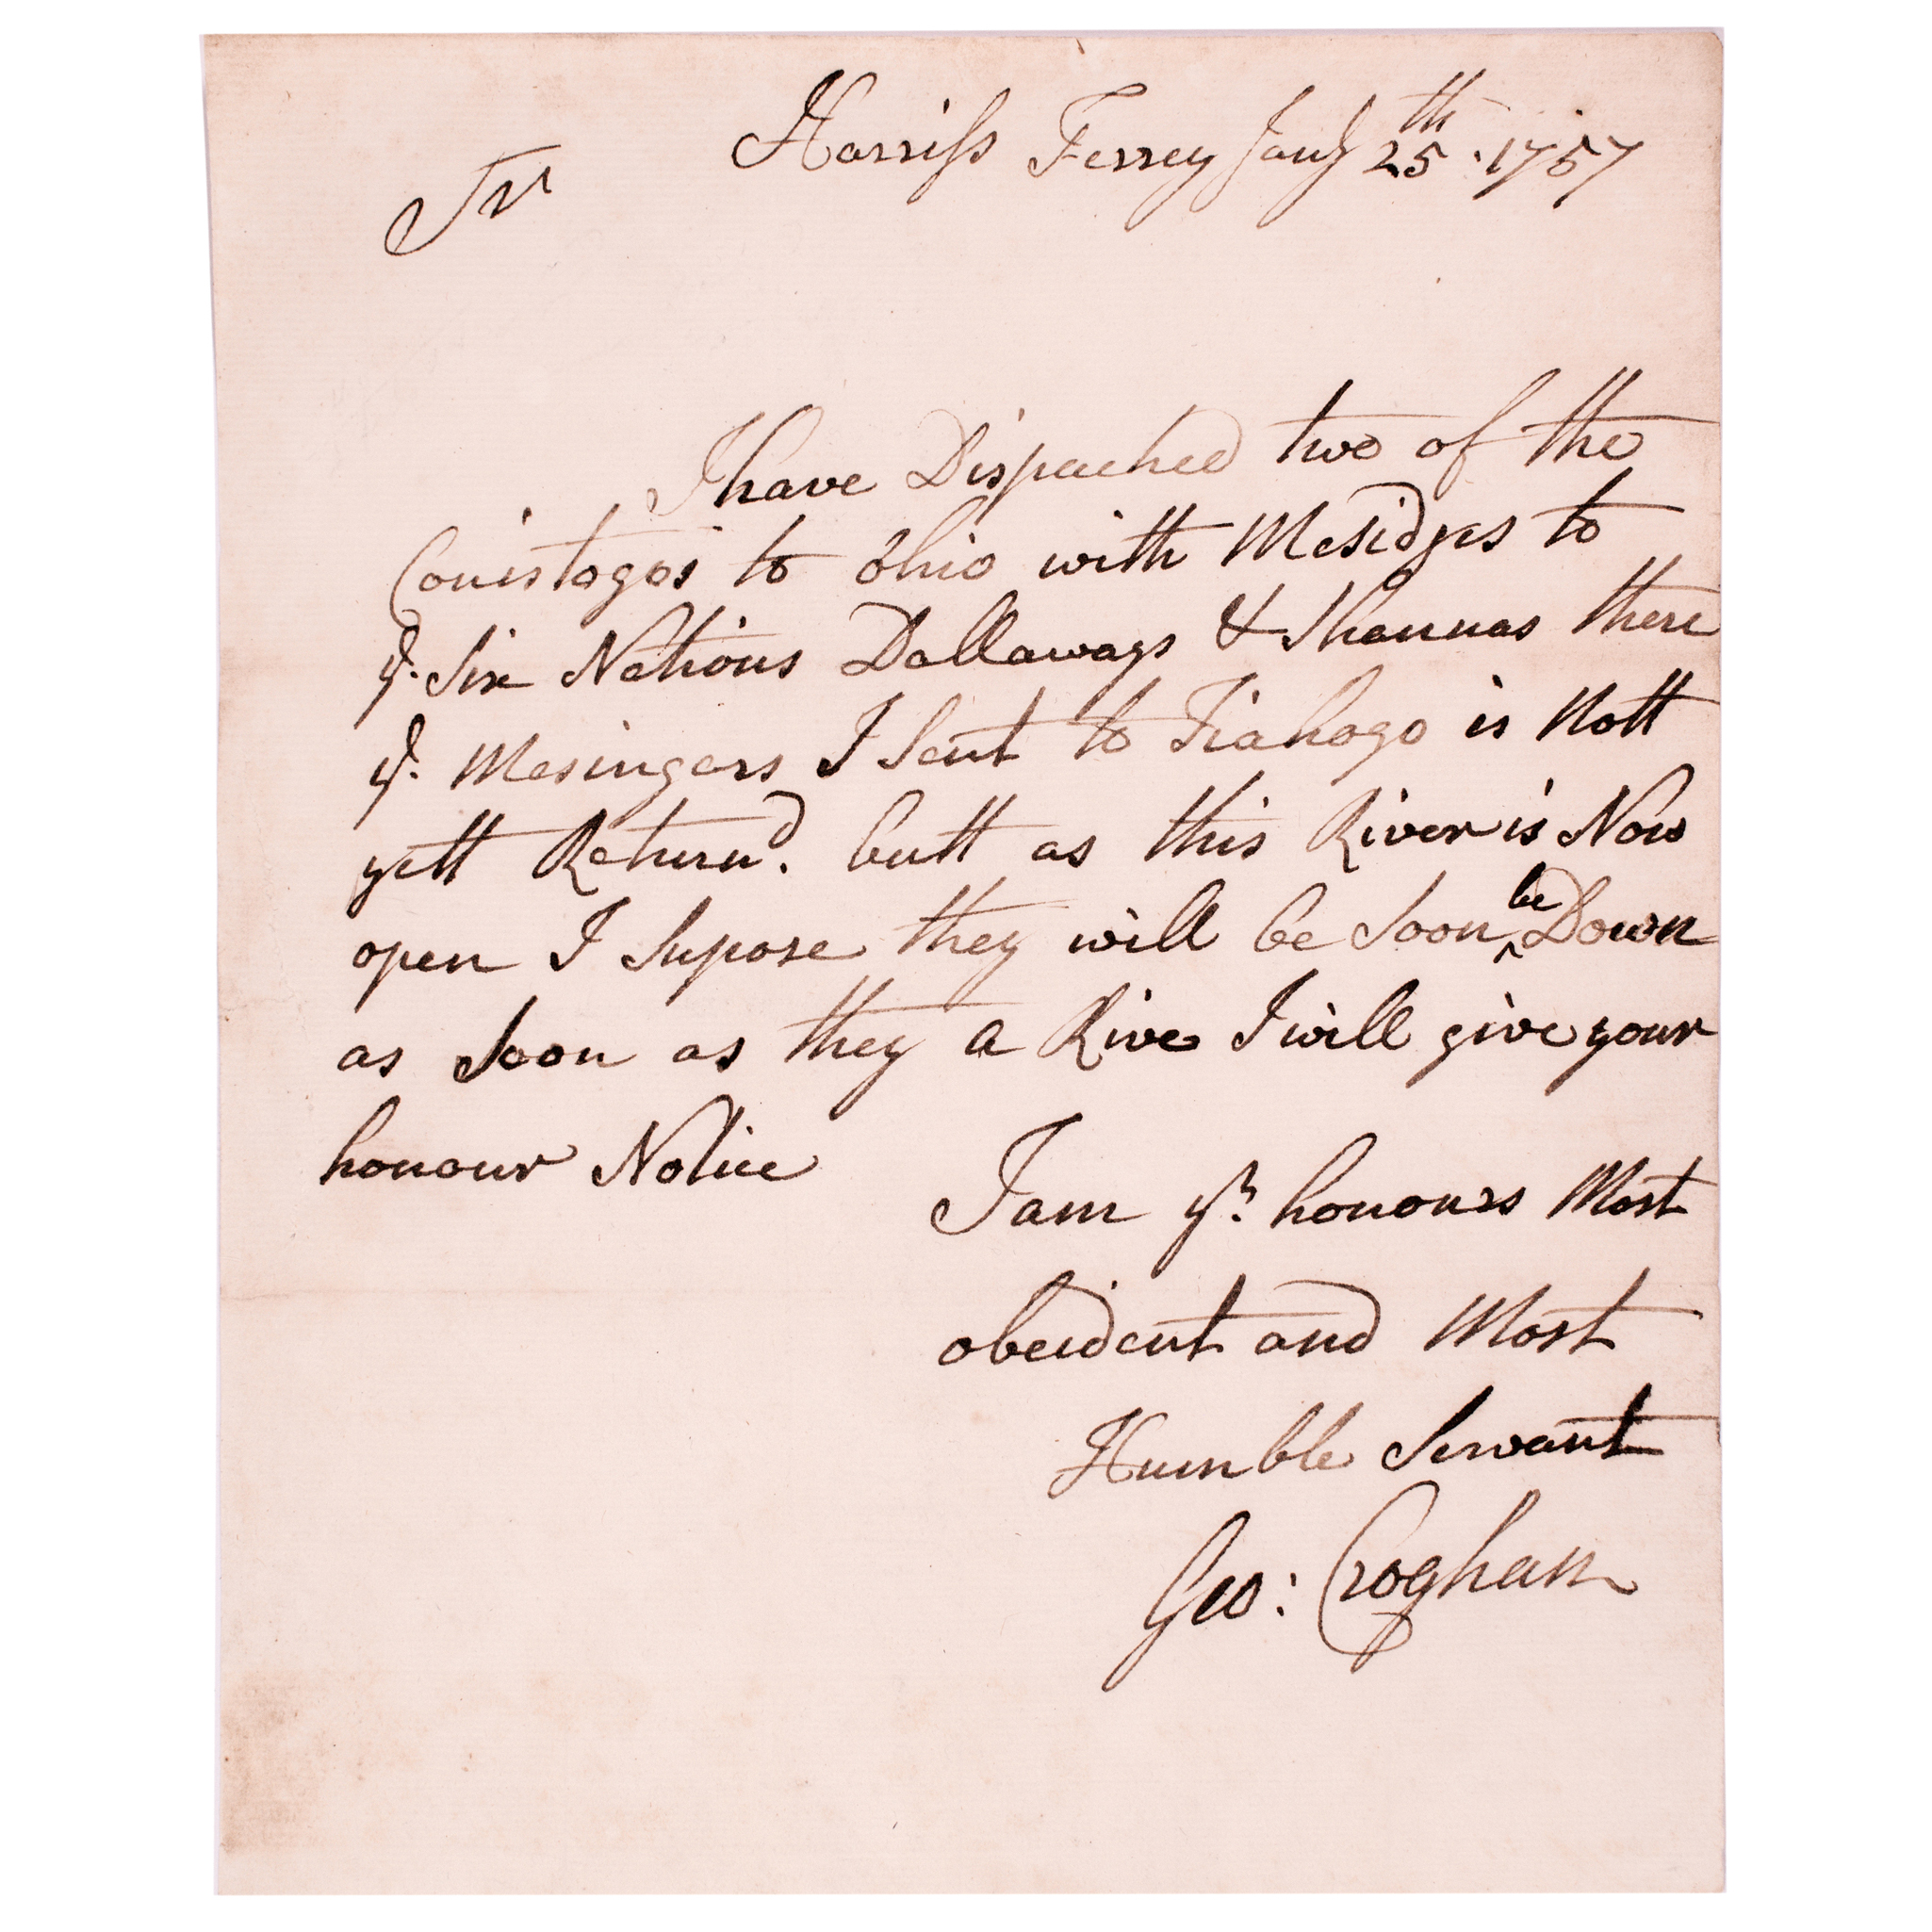 Harriss Ferrey Jany 25th 1757
Sr
I have Dispached two of the
Conistogos to Ohio with Mesidges to
ye. Six Nations Dallaways & Shannas there
ye. Mesingers I Sent to Tiahogo is Nott
yett Returnd. butt as this River is Now
open I Supose they will be Soon be Down
as Soon as they a Rive I will give your
honour Notice
I am yr. honours Most
obeident and Most
Humble Servant
Geo: Croghan